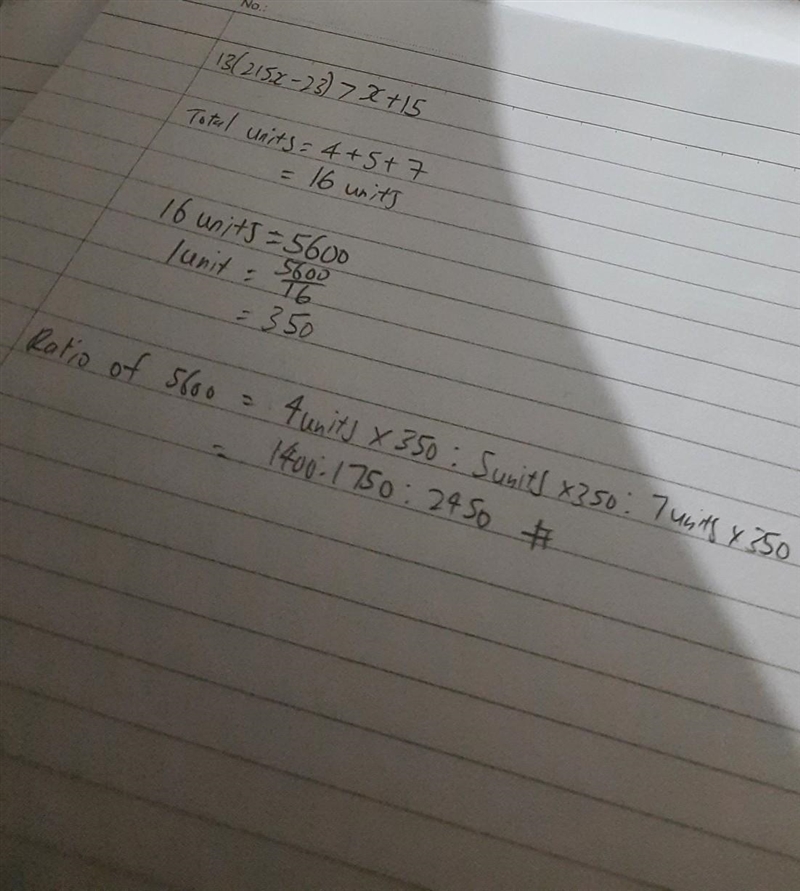 No.:
13(215x-23) > x+15
Total units = 4+5+7
= 16 units
16 units = 5600
1unit = 5600/16
= 350
Ratio of 5600 = 4units × 350 : 5units × 350 : 7units × 350
= 1400:1750:2450 #